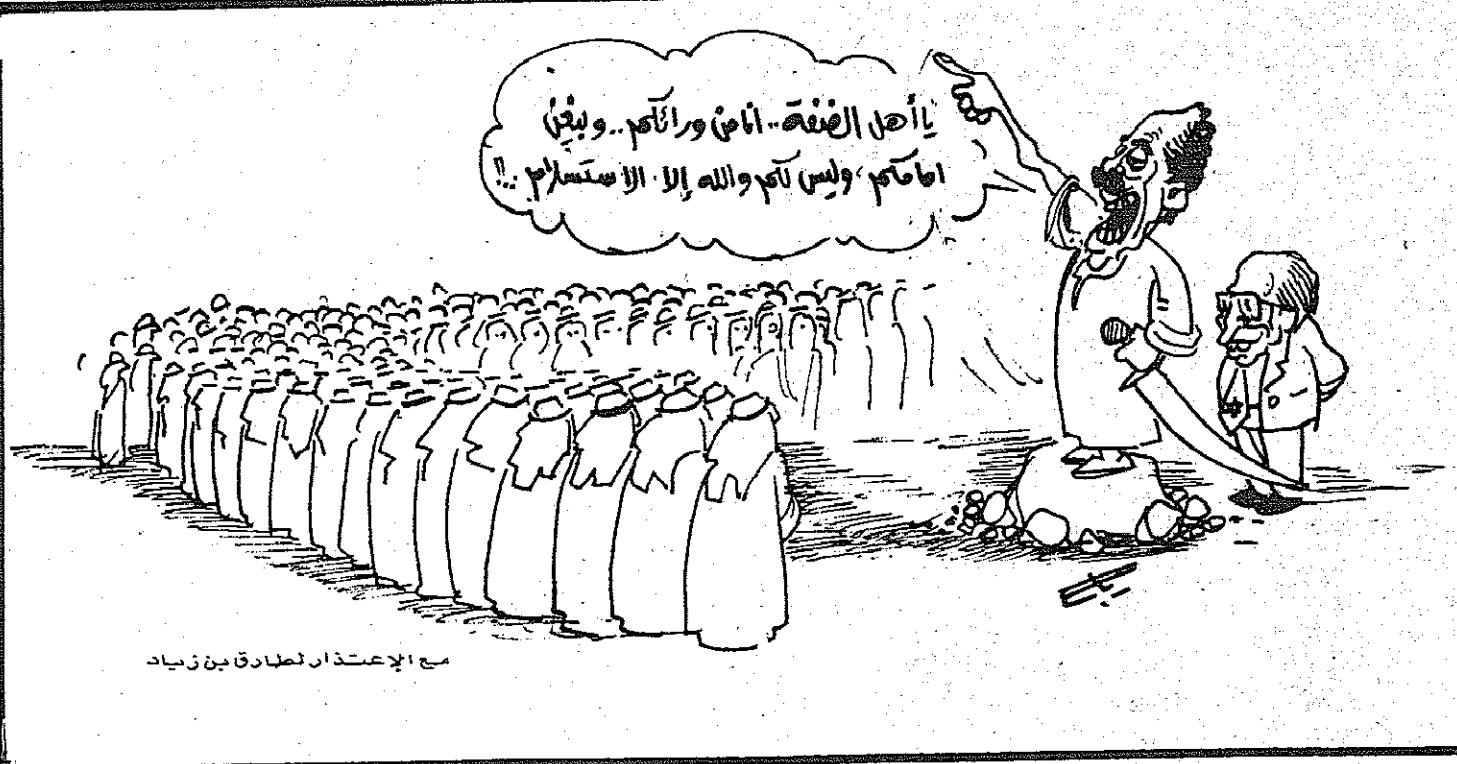 يا أهل الضفة.. أنا من ورائكم.. وبيغن
امامكم، وليس لكم والله إلا الاستسلام..!!
مع الإعتذار لطارق بن زياد